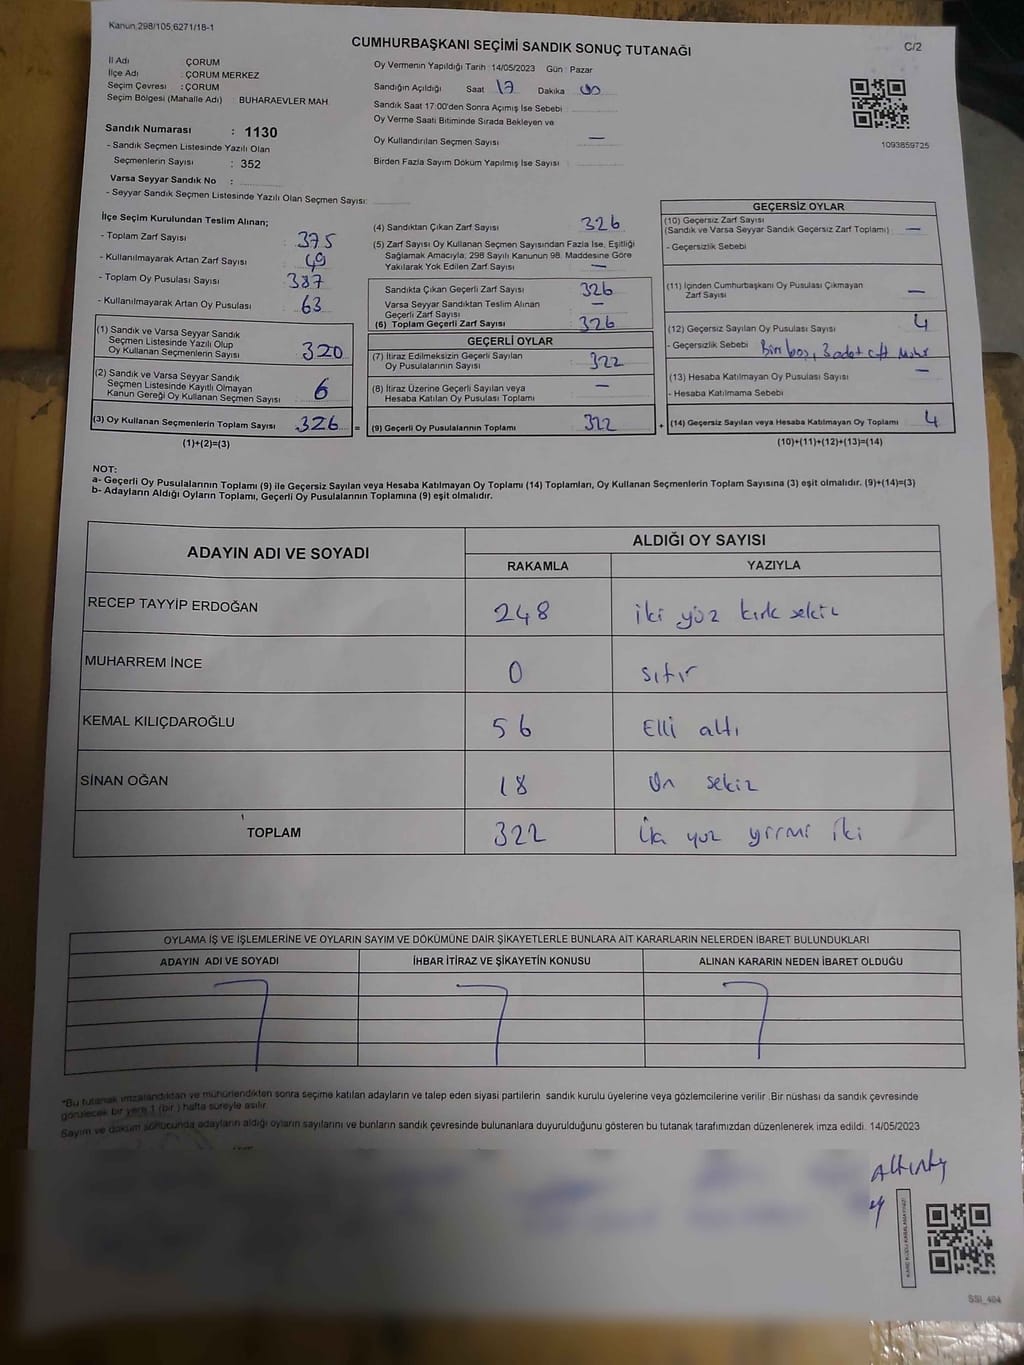 Kanun,298/105,6271/18-1
CUMHURBAŞKANI SEÇİMİ SANDIK SONUÇ TUTANAĞI
C/2
İl Adı : ÇORUM
İlçe Adı : ÇORUM MERKEZ
Seçim Çevresi : ÇORUM
Seçim Bölgesi (Mahalle Adı) BUHARAEVLER MAH.
Sandık Numarası : 1130
- Sandık Seçmen Listesinde Yazılı Olan
Seçmenlerin Sayısı : 352
Varsa Seyyar Sandık No :
- Seyyar Sandık Seçmen Listesinde Yazılı Olan Seçmen Sayısı:
Oy Vermenin Yapıldığı Tarih :14/05/2023 Gün : Pazar
Sandığın Açıldığı Saat 17 Dakika
Sandık Saat 17:00'den Sonra Açımış İse Sebebi
Oy Verme Saati Bitiminde Sırada Bekleyen ve
Oy Kullandırılan Seçmen Sayısı —
Birden Fazla Sayım Döküm Yapılmış İse Sayısı
1093859725
İlçe Seçim Kurulundan Teslim Alınan;
- Toplam Zarf Sayısı 375
- Kullanılmayarak Artan Zarf Sayısı 49
- Toplam Oy Pusulası Sayısı 387
- Kullanılmayarak Artan Oy Pusulası 63
(1) Sandık ve Varsa Seyyar Sandık
Seçmen Listesinde Yazılı Olup
Oy Kullanan Seçmenlerin Sayısı 320
(2) Sandık ve Varsa Seyyar Sandık
Seçmen Listesinde Kayıtlı Olmayan
Kanun Gereği Oy Kullanan Seçmen Sayısı 6
(3) Oy Kullanan Seçmenlerin Toplam Sayısı 326 =
(1)+(2)=(3)
(4) Sandıktan Çıkan Zarf Sayısı 326
(5) Zarf Sayısı Oy Kullanan Seçmen Sayısından Fazla İse, Eşitliği
Sağlamak Amacıyla, 298 Sayılı Kanunun 98. Maddesine Göre
Yakılarak Yok Edilen Zarf Sayısı —
Sandıkta Çıkan Geçerli Zarf Sayısı 326
Varsa Seyyar Sandıktan Teslim Alınan
Geçerli Zarf Sayısı —
(6) Toplam Geçerli Zarf Sayısı 326
GEÇERLİ OYLAR
(7) İtiraz Edilmeksizin Geçerli Sayılan
Oy Pusulalarının Sayısı 322
(8) İtiraz Üzerine Geçerli Sayılan veya
Hesaba Katılan Oy Pusulası Toplamı —
(9) Geçerli Oy Pusulalarının Toplamı 322 +
GEÇERSİZ OYLAR
(10) Geçersiz Zarf Sayısı
(Sandık ve Varsa Seyyar Sandık Geçersiz Zarf Toplamı) —
- Geçersizlik Sebebi
(11) İçinden Cumhurbaşkanı Oy Pusulası Çıkmayan
Zarf Sayısı —
(12) Geçersiz Sayılan Oy Pusulası Sayısı 4
- Geçersizlik Sebebi Biri boş, 3 adet çift Mühür
(13) Hesaba Katılmayan Oy Pusulası Sayısı —
- Hesaba Katılmama Sebebi
(14) Geçersiz Sayılan veya Hesaba Katılmayan Oy Toplamı 4
(10)+(11)+(12)+(13)=(14)
NOT:
a- Geçerli Oy Pusulalarının Toplamı (9) ile Geçersiz Sayılan veya Hesaba Katılmayan Oy Toplamı (14) Toplamları, Oy Kullanan Seçmenlerin Toplam Sayısına (3) eşit olmalıdır. (9)+(14)=(3)
b- Adayların Aldığı Oyların Toplamı, Geçerli Oy Pusulalarının Toplamına (9) eşit olmalıdır.
ADAYIN ADI VE SOYADI
ALDIĞI OY SAYISI
RAKAMLA YAZIYLA
RECEP TAYYİP ERDOĞAN 248 iki yüz kırk sekiz
MUHARREM İNCE 0 sıfır
KEMAL KILIÇDAROĞLU 56 Elli altı
SİNAN OĞAN 18 On sekiz
TOPLAM 322 yüz yirmi iki
OYLAMA İŞ VE İŞLEMLERİNE VE OYLARIN SAYIM VE DÖKÜMÜNE DAİR ŞİKAYETLERLE BUNLARA AİT KARARLARIN NELERDEN İBARET BULUNDUKLARI
ADAYIN ADI VE SOYADI İHBAR İTİRAZ VE ŞİKAYETİN KONUSU ALINAN KARARIN NEDEN İBARET OLDUĞU
*Bu tutanak imzalandıktan ve mühürlendikten sonra seçime katılan adayların ve talep eden siyasi partilerin sandık kurulu üyelerine veya gözlemcilerine verilir .Bir nüshası da sandık çevresinde
görülecek bir yere 1 (bir ) hafta süreyle asılır.
Sayım ve döküm sonucunda adayların aldığı oyların sayılarını ve bunların sandık çevresinde bulunanlara duyurulduğunu gösteren bu tutanak tarafımızdan düzenlenerek imza edildi. 14/05/2023
SSI_404